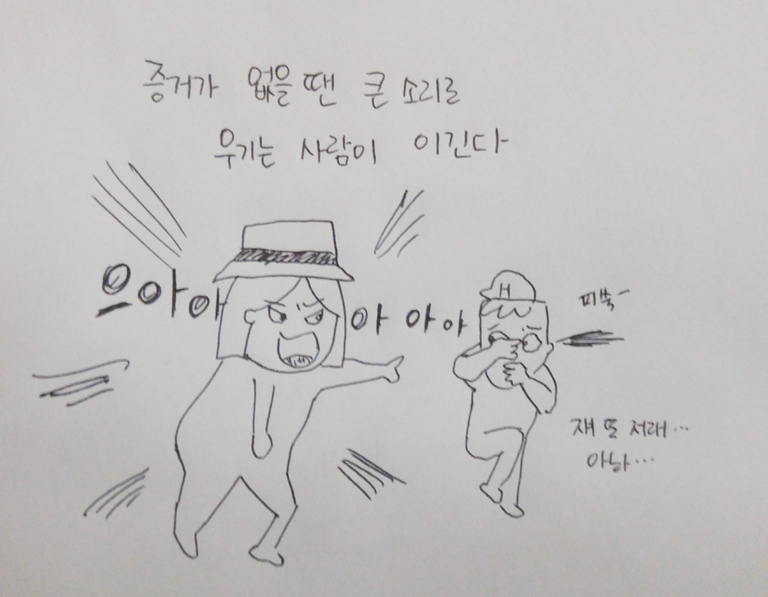 증거가 없을 땐 큰 소리로
우기는 사람이 이긴다
으아아아아아
H
피쓕~
쟤 또 저래...
아놔...